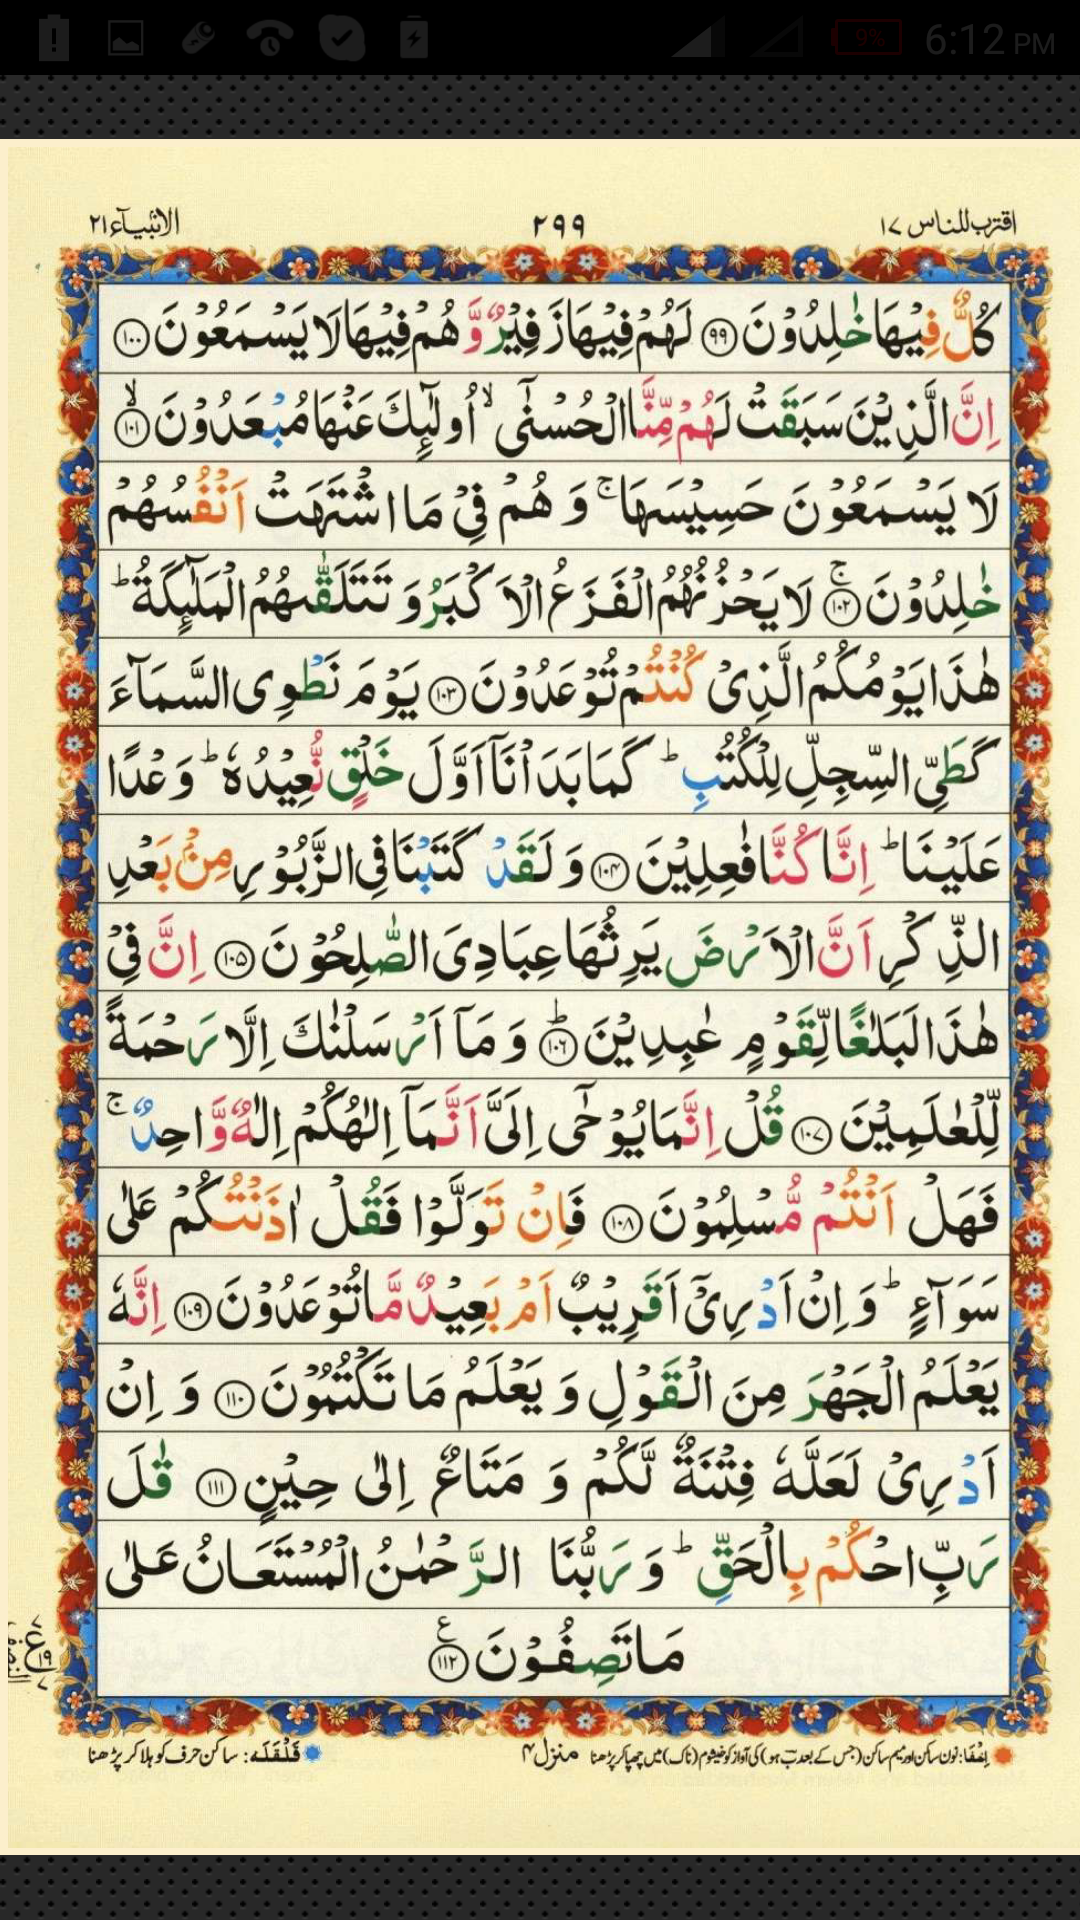 6:12 PM
9%
اقترب للناس ١٧
٢٩٩
الانبیآء ٢١
كُلٌّ فِیْهَا خٰلِدُوْنَ ﴿٩٩﴾ لَهُمْ فِیْهَا زَفِیْرٌ وَّ هُمْ فِیْهَا لَا یَسْمَعُوْنَ ﴿١٠٠﴾
اِنَّ الَّذِیْنَ سَبَقَتْ لَهُمْ مِّنَّا الْحُسْنٰۤی ۙ اُولٰٓئِكَ عَنْهَا مُبْعَدُوْنَ ﴿١٠١﴾ۙ
لَا یَسْمَعُوْنَ حَسِیْسَهَا ۚ وَ هُمْ فِیْ مَا اشْتَهَتْ اَنْفُسُهُمْ
خٰلِدُوْنَ ﴿١٠٢﴾ۚ لَا یَحْزُنُهُمُ الْفَزَعُ الْاَكْبَرُ وَ تَتَلَقّٰىهُمُ الْمَلٰٓئِكَةُ ؕ
هٰذَا یَوْمُكُمُ الَّذِیْ كُنْتُمْ تُوْعَدُوْنَ ﴿١٠٣﴾ یَوْمَ نَطْوِی السَّمَآءَ
كَطَیِّ السِّجِلِّ لِلْكُتُبِ ؕ كَمَا بَدَاْنَاۤ اَوَّلَ خَلْقٍ نُّعِیْدُهٗ ؕ وَعْدًا
عَلَیْنَا ؕ اِنَّا كُنَّا فٰعِلِیْنَ ﴿١٠٤﴾ وَ لَقَدْ كَتَبْنَا فِی الزَّبُوْرِ مِنْۢ بَعْدِ
الذِّكْرِ اَنَّ الْاَرْضَ یَرِثُهَا عِبَادِیَ الصّٰلِحُوْنَ ﴿١٠٥﴾ اِنَّ فِیْ
هٰذَا لَبَلٰغًا لِّقَوْمٍ عٰبِدِیْنَ ﴿١٠٦﴾ؕ وَ مَاۤ اَرْسَلْنٰكَ اِلَّا رَحْمَةً
لِّلْعٰلَمِیْنَ ﴿١٠٧﴾ قُلْ اِنَّمَا یُوْحٰۤی اِلَیَّ اَنَّمَاۤ اِلٰهُكُمْ اِلٰهٌ وَّاحِدٌ ۚ
فَهَلْ اَنْتُمْ مُّسْلِمُوْنَ ﴿١٠٨﴾ فَاِنْ تَوَلَّوْا فَقُلْ اٰذَنْتُكُمْ عَلٰی
سَوَآءٍ ؕ وَ اِنْ اَدْرِیْۤ اَقَرِیْبٌ اَمْ بَعِیْدٌ مَّا تُوْعَدُوْنَ ﴿١٠٩﴾ اِنَّهٗ
یَعْلَمُ الْجَهْرَ مِنَ الْقَوْلِ وَ یَعْلَمُ مَا تَكْتُمُوْنَ ﴿١١٠﴾ وَ اِنْ
اَدْرِیْ لَعَلَّهٗ فِتْنَةٌ لَّكُمْ وَ مَتَاعٌ اِلٰی حِیْنٍ ﴿١١١﴾ قٰلَ
رَبِّ احْكُمْ بِالْحَقِّ ؕ وَ رَبُّنَا الرَّحْمٰنُ الْمُسْتَعَانُ عَلٰی
مَا تَصِفُوْنَ ﴿١١٢﴾
ع
اِخْفَا: نون ساکن اور میم ساکن (جس کے بعد ب ہو) کی آواز کو خیشوم (ناک) میں چھپا کر پڑھنا
منزل ۴
قَلْقَلَه: ساکن حرف کو ہلا کر پڑھنا